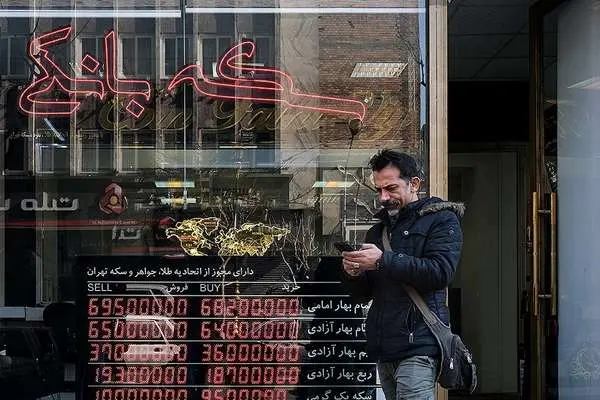 سکه بانکی
دارای مجوز از اتحادیه طلا، جواهر و سکه تهران
SELL فروش BUY خرید
69500000 68200000 تمام بهار امامی
65000000 64000000 بهار آزادی
36000000 بهار آزادی
19300000 18700000 ربع بهار آزادی
سکه یک گرمی